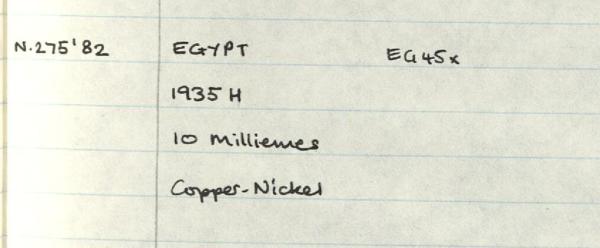 N.275'82 EGYPT EG45x
1935 H
10 Milliemes
Copper-Nickel